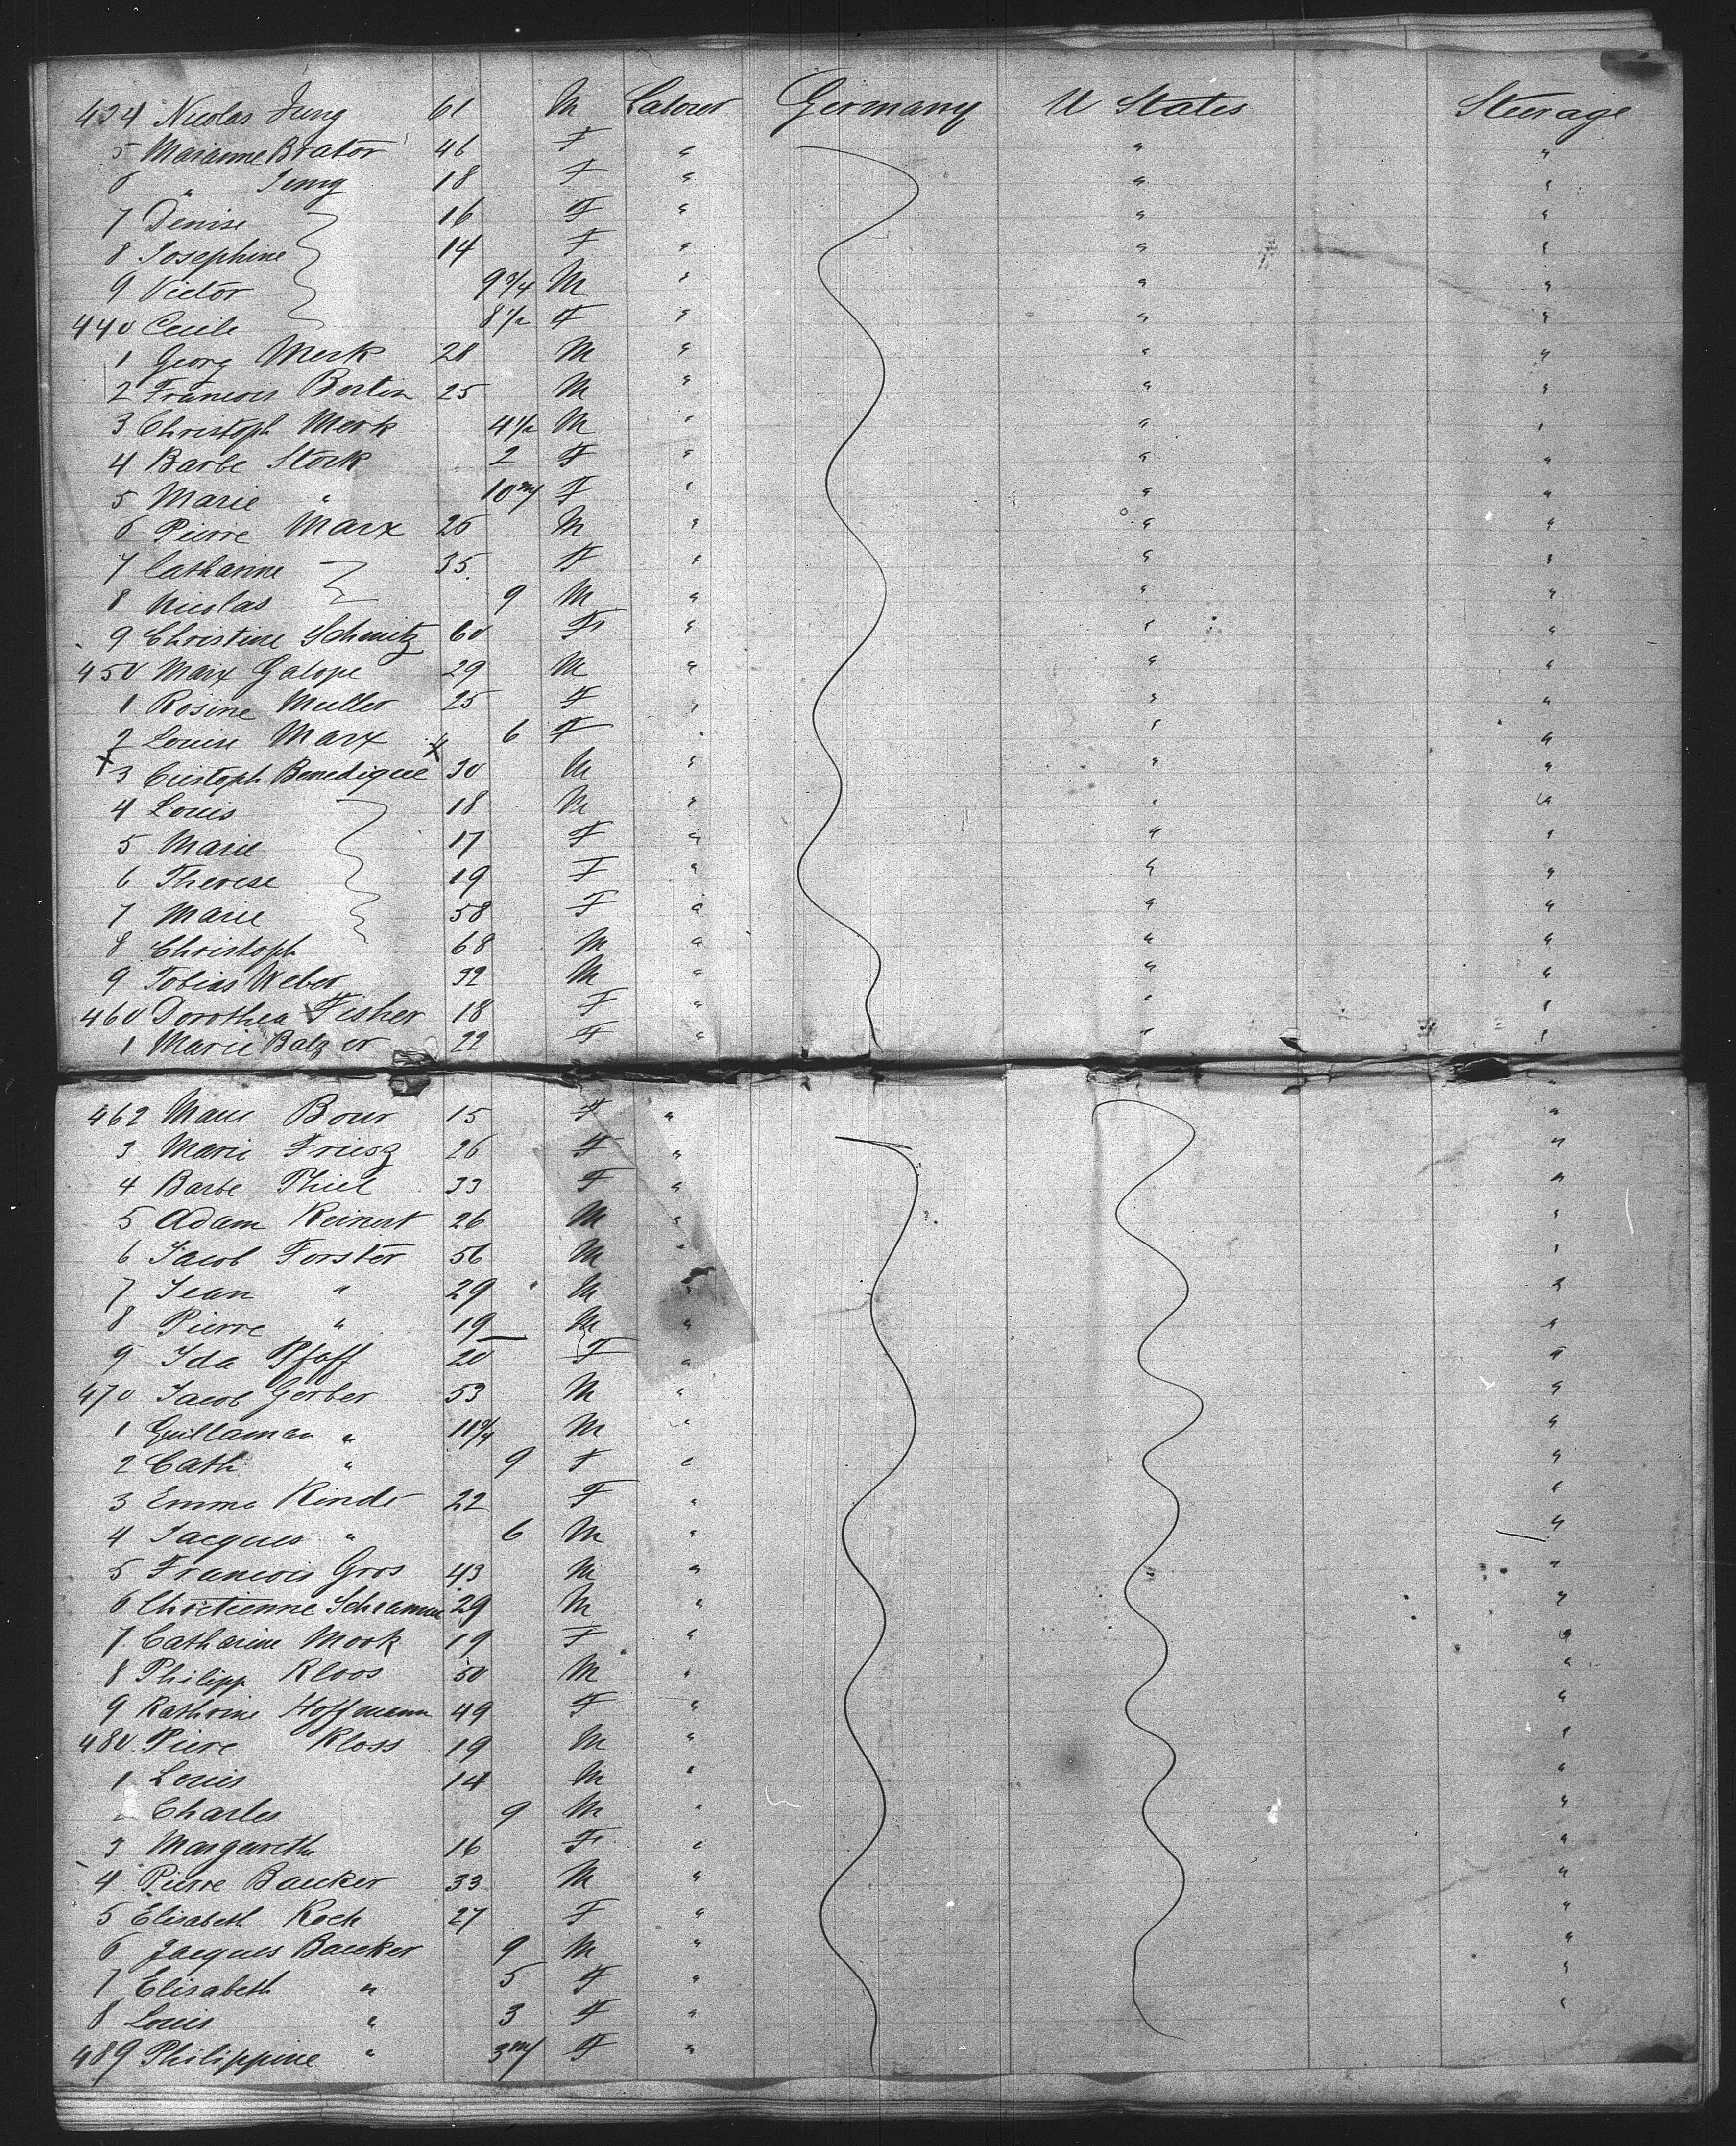 434 Nicolas Jung 61 M Labour Germany U States Steerage
5 Marianne Brator 46 F " " "
6 " Jung 18 F " " "
7 Denise 16 F " " "
8 Josephine 14 F " " "
9 Victor 9 3/4 M " " "
440 Cecile 8 1/2 F " " "
1 Georg Merk 28 M " " "
2 Francois Bertin 25 M " " "
3 Christoph Merk 4 1/2 M " " "
4 Barbe Stork 2 F " " "
5 Marie " 10 m/ F " " "
6 Pierre Marx 26 M " " "
7 Catharine 35 F " " "
8 Nicolas 9 M " " "
9 Christine Schmitz 60 F " " "
450 Marx Galope 29 M " " "
1 Rosine Muller 25 F " " "
2 Louise Marx 6 F " " "
x 3 Cristoph Benedique x 30 M " " "
4 Louis 18 M " " "
5 Marie 17 F " " "
6 Therese 19 F " " "
7 Marie 58 F " " "
8 Christoph 68 M " " "
9 Tobias Weber 32 M " " "
460 Dorothea Fisher 18 F " " "
1 Marie Balzer 22 F " " "
462 Marie Bour 15 F " "
3 Marie Friesz 26 F " "
4 Barbe Thiel 33 F " "
5 Adam Reinert 26 M " "
6 Jacob Forster 56 M " "
7 Jean " 29 M " "
8 Pierre " 19 M " "
9 Ida Pfaff 20 F " "
470 Jacob Gerber 53 M " "
1 Guillaman " 11 9/4 M " "
2 Cath " 9 F " "
3 Emma Rinds 22 F " "
4 Jacques " 6 M " "
5 Francois Gros 43 M " "
6 Chretienne Schramm 29 M " "
7 Catharine Mook 19 F " "
8 Philipp Kloos 50 M " "
9 Kathrine Hoffmann 49 F " "
480 Piere Kloss 19 M " "
1 Louis 14 M " "
2 Charles 9 M " "
3 Margareth 16 F " "
4 Pierre Baecker 33 M " "
5 Elisabeth Koch 27 F " "
6 Jacques Baecker 9 M " "
7 Elisabeth " 5 F " "
8 Louis " 3 F " "
489 Philippine " 3 m/ F "